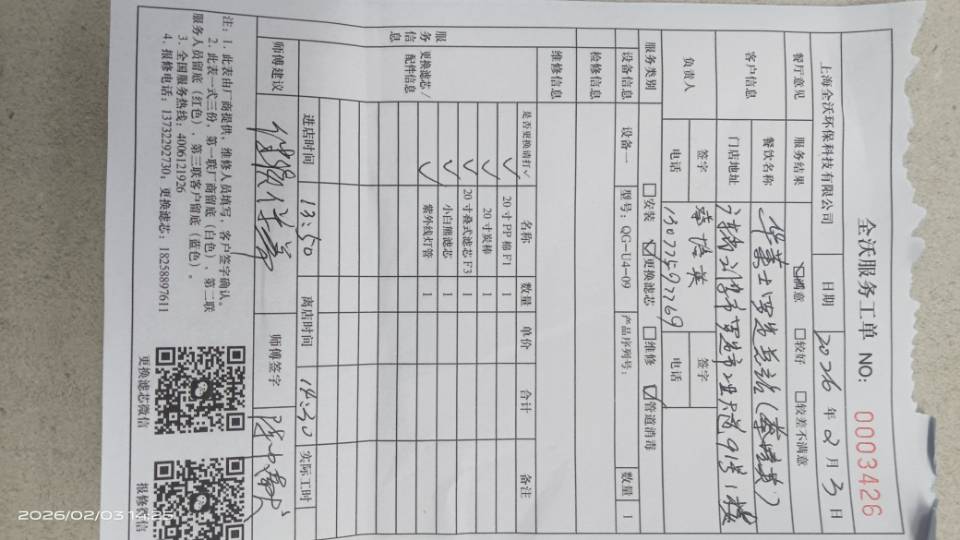 全沃服务工单 NO: 0003426
上海全沃环保科技有限公司 日期 2026 年 2 月 3 日
餐厅意见 服务结果 满意 较好 较差不满意
客户信息 餐饮名称 华莱士
门店地址
负责人 签字 签字
电话 电话
服务类别 安装 更换滤芯 维修 管道消毒
设备信息 设备一 型号：QG-U4-09 产品序列号： 数量 1
检修信息
维修信息
服务信息
更换滤芯/配件信息 是否更换请打√ 名称 数量 单价 合计 备注
√ 20寸PP棉F1 1
√ 20寸炭棒 1
√ 20寸叠式滤芯F3 1
√ 小白熊滤芯 1
√ 紫外线灯管 1
进店时间 13:50 离店时间 14:30 实际工时
师傅建议 师傅签字
注：1. 此表由厂商提供，维修人员填写，客户签字确认。
2. 此表一式三份，第一联厂商留底（白色），第二联
服务人员留底（红色），第三联客户留底（蓝色）。
3. 全国服务热线：4006121926
4. 报修电话：13732292730；更换滤芯：18258897611
更换滤芯微信 报修微信
2026/02/03 14:25